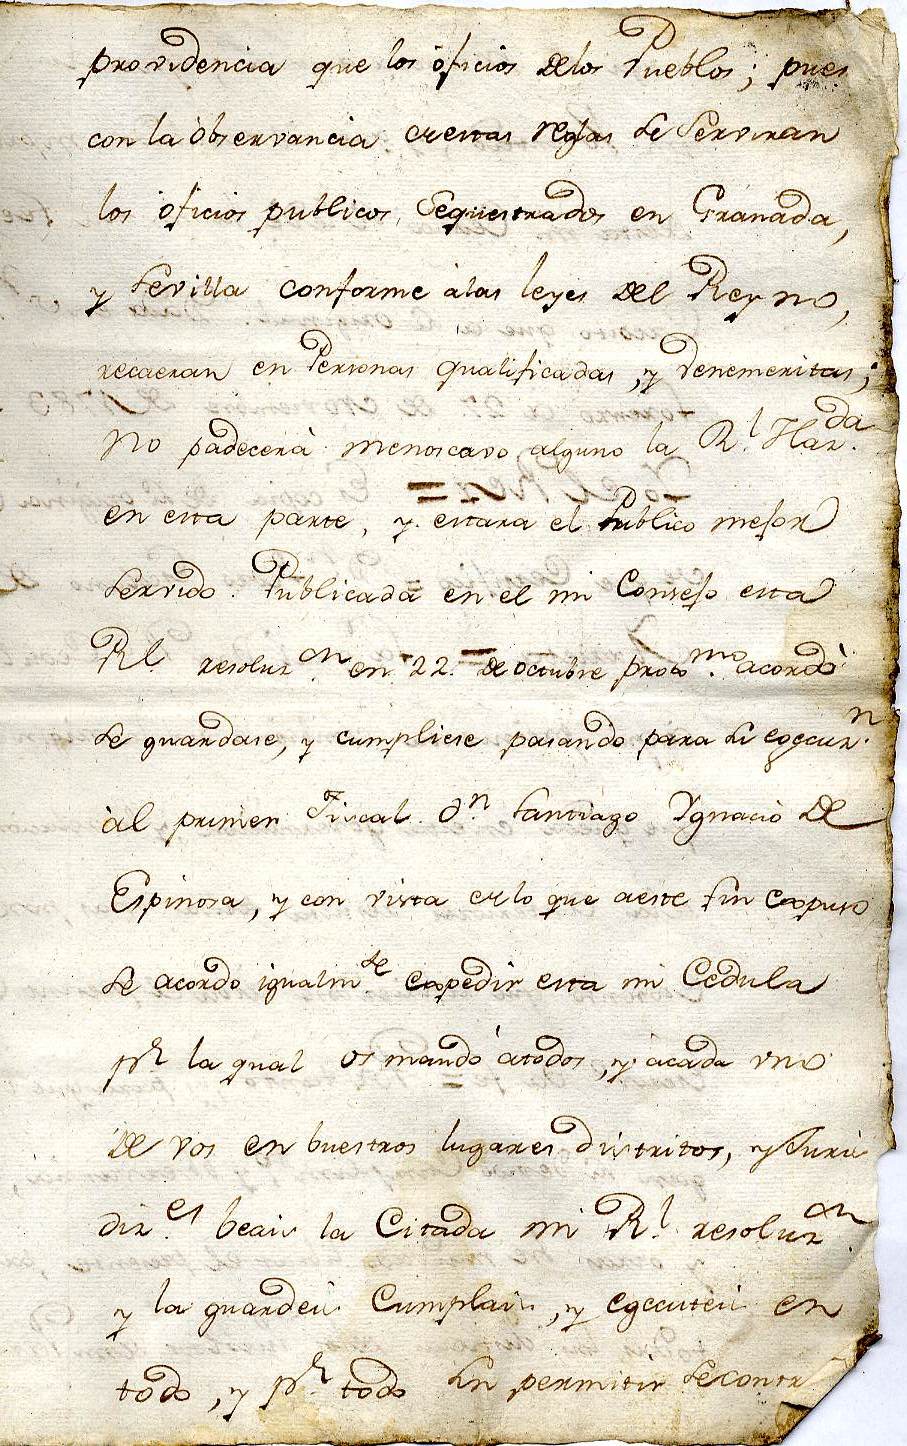 providencia que los oficios delos Pueblos; pues
con la observancia de estas reglas se serviran
los oficios publicos, Sequestrados en Granada,
y Sevilla conforme àlas leyes del Reyno,
recaeran en Personas qualificadas, y venemeritas;
No padecerà menoscavo alguno la Rl. Haz.da
en esta parte, y estara el Publico mejor
servido. Publicada en el mi Consejo esta
Rl resoluz.on en 22. de octubre proxo.mo acordò
se guardase, y cumpliese pasando para su egecuz.n
àl primer Fiscal Dn. Santiago Ygnacio de
Espinosa, y con vista de lo que a este fin expuso
se acordo igualm.te expedir esta mi Cedula
pr. la qual os mando àtodos, y àcada uno
de vos en buestros lugares distritos, y Juris
diz.es beais la Citada mi Rl. resoluz.on
y la guardeis Cumplais, y egecuteis en
todo, y pr. todo sin permitir se contr